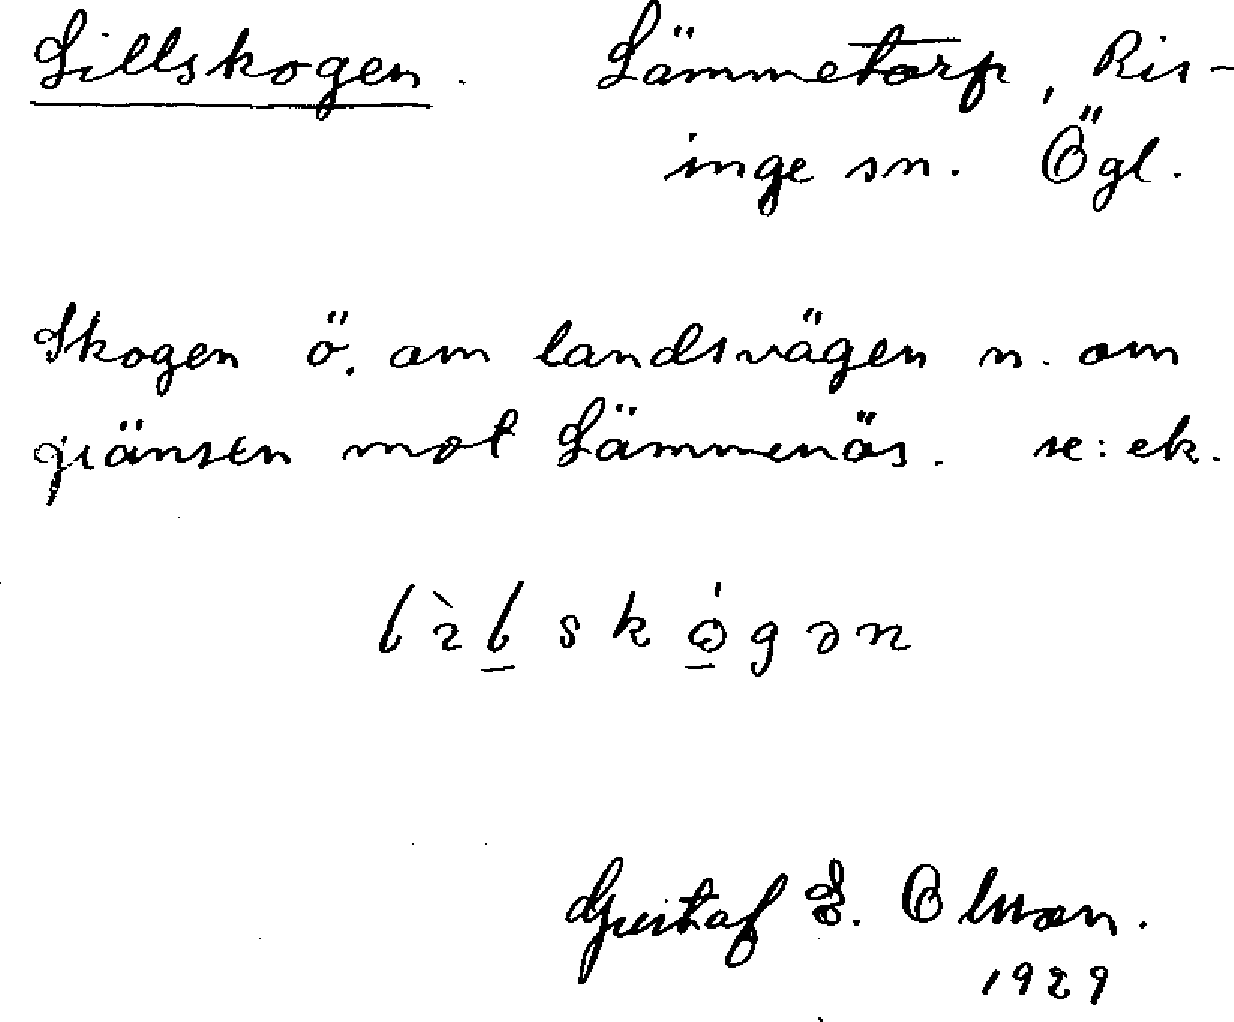 Lillskogen. Lämmetorp, Ris-
inge sn. Ögl.
Skogen ö. om landsvägen n. om
gränsen mot Lämmenäs. se: ek.
Gustaf E. Olsson.
1929